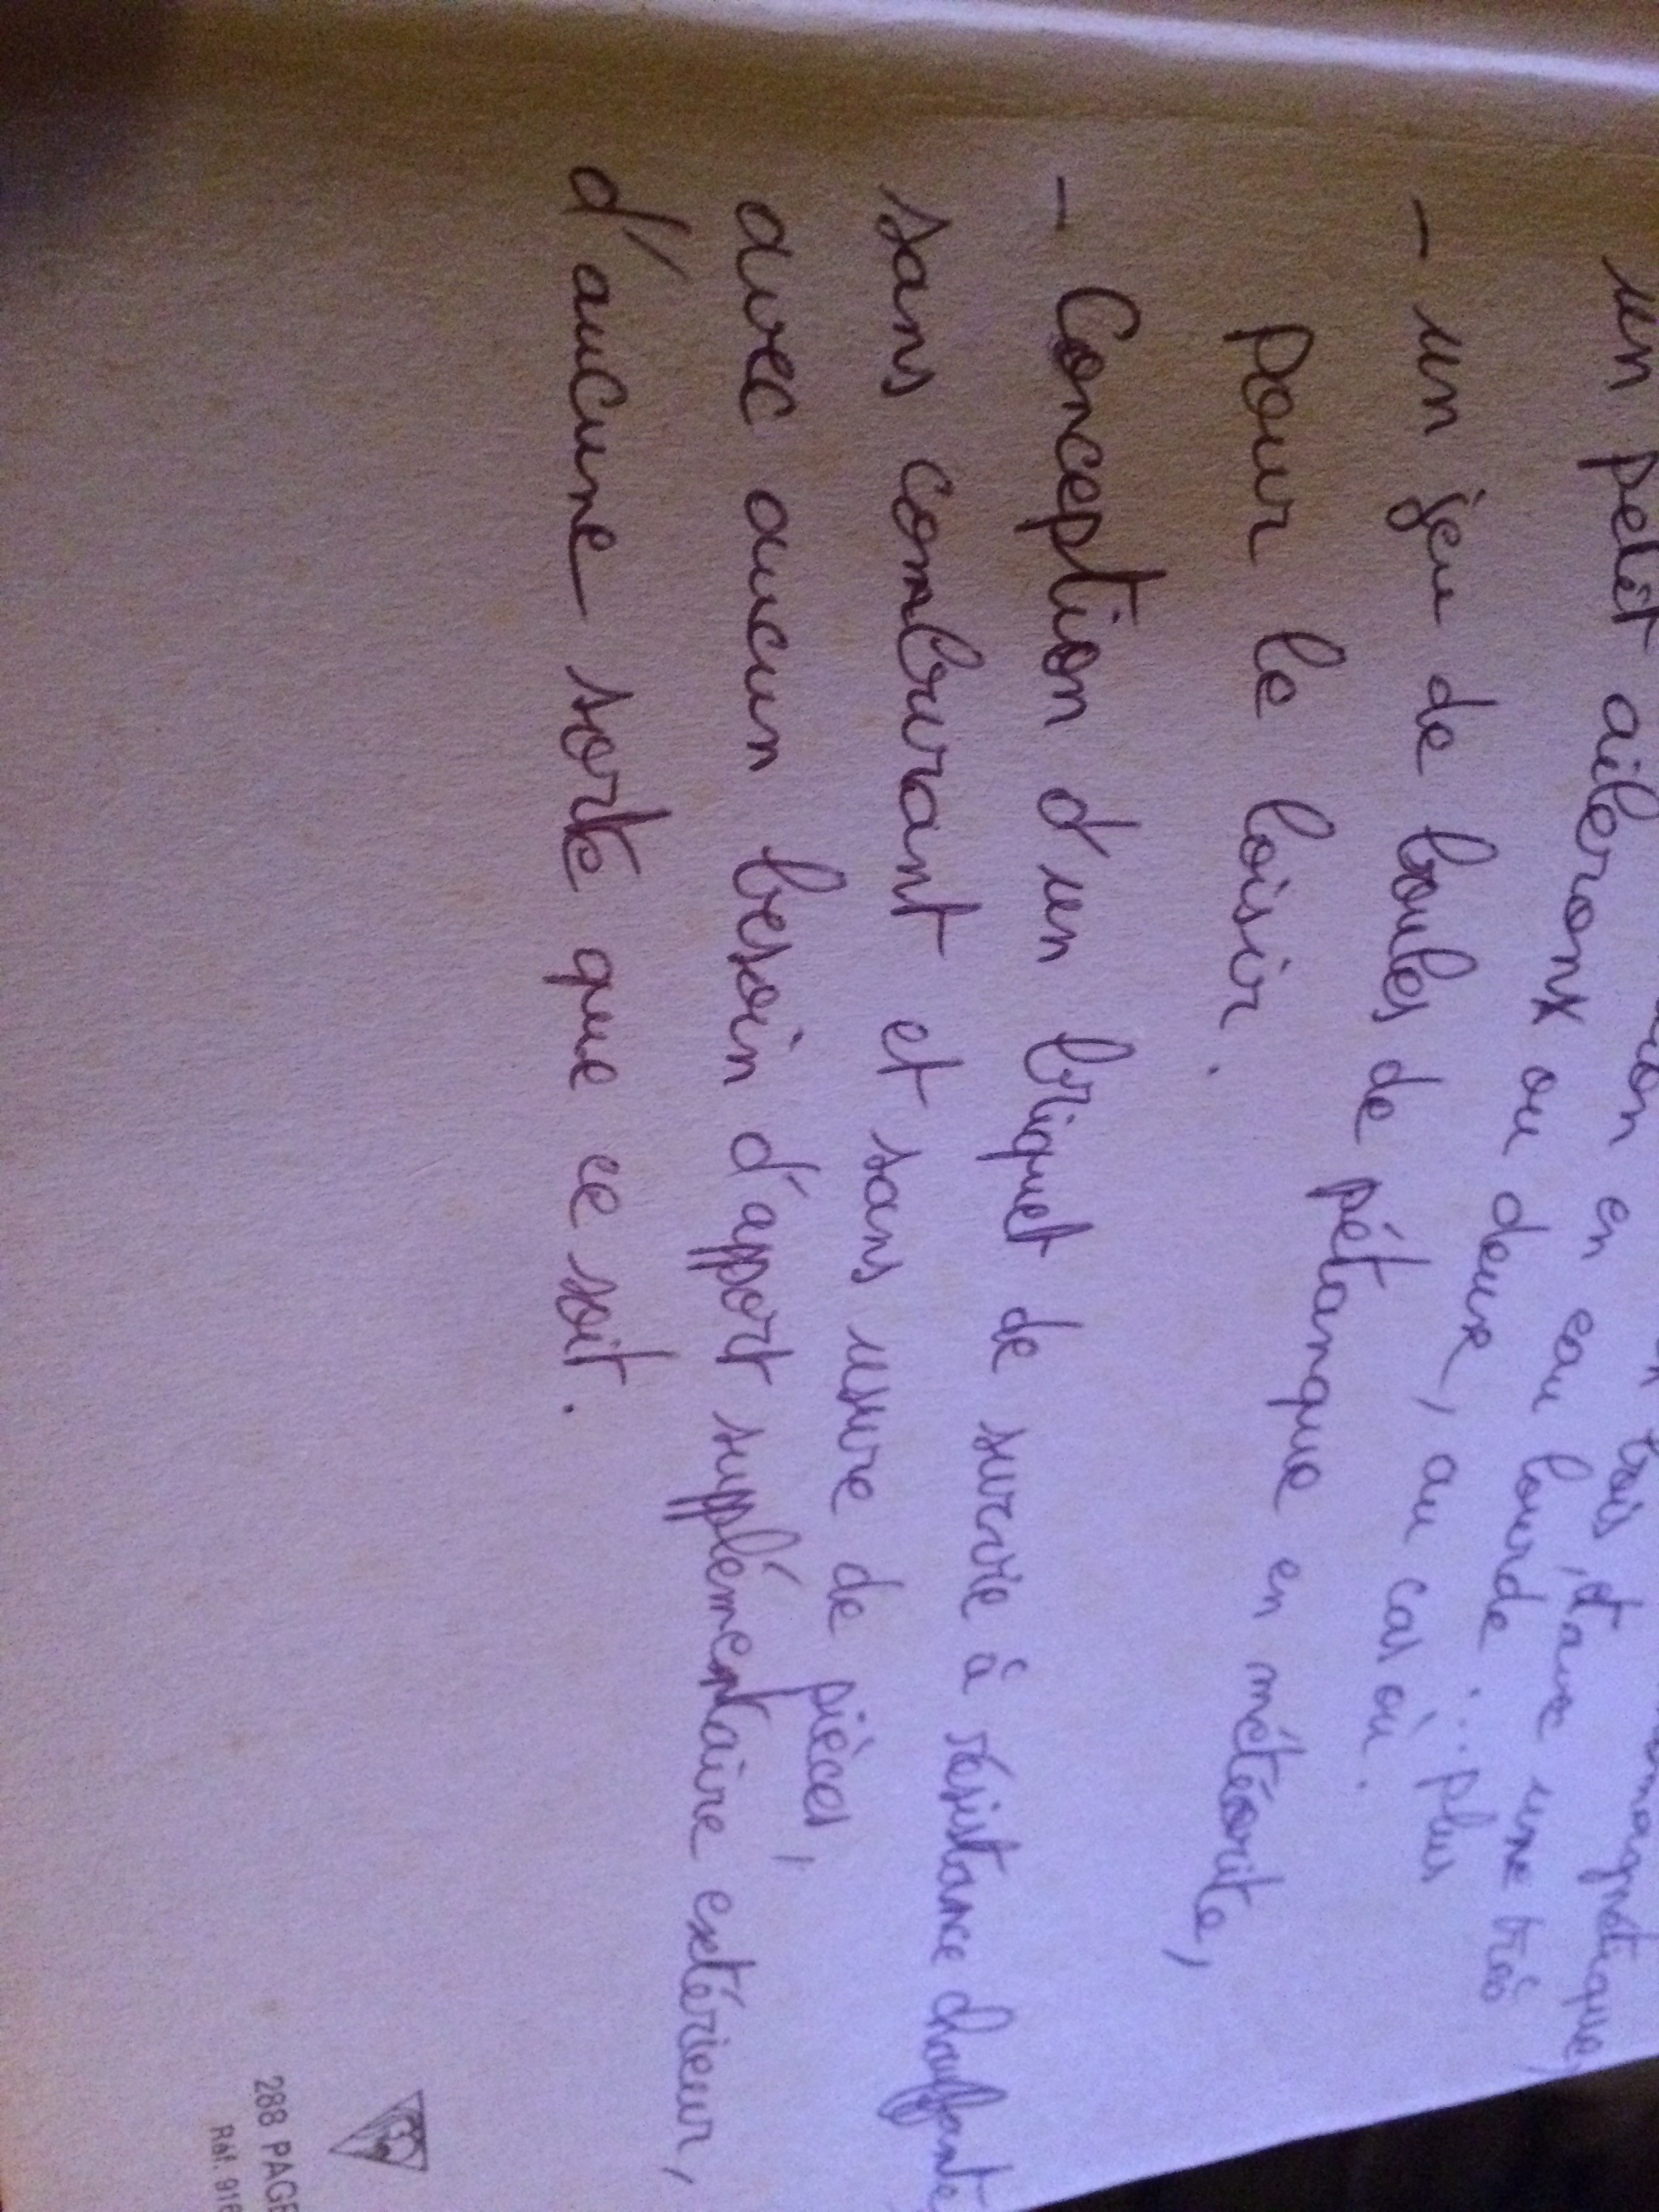 en bois, et
en eau lourde... plus
un petit aileronx ou deux, au cas où.
- un jeu de boules de pétanque en météorite,
pour le loisir.
- Conception d'un briquet de survie à résistance chauffante
sans comburant et sans usure de pièces,
avec aucun besoin d'apport supplémentaire extérieur,
d'aucune sorte que ce soit.
288 PAGE
Réf. 916